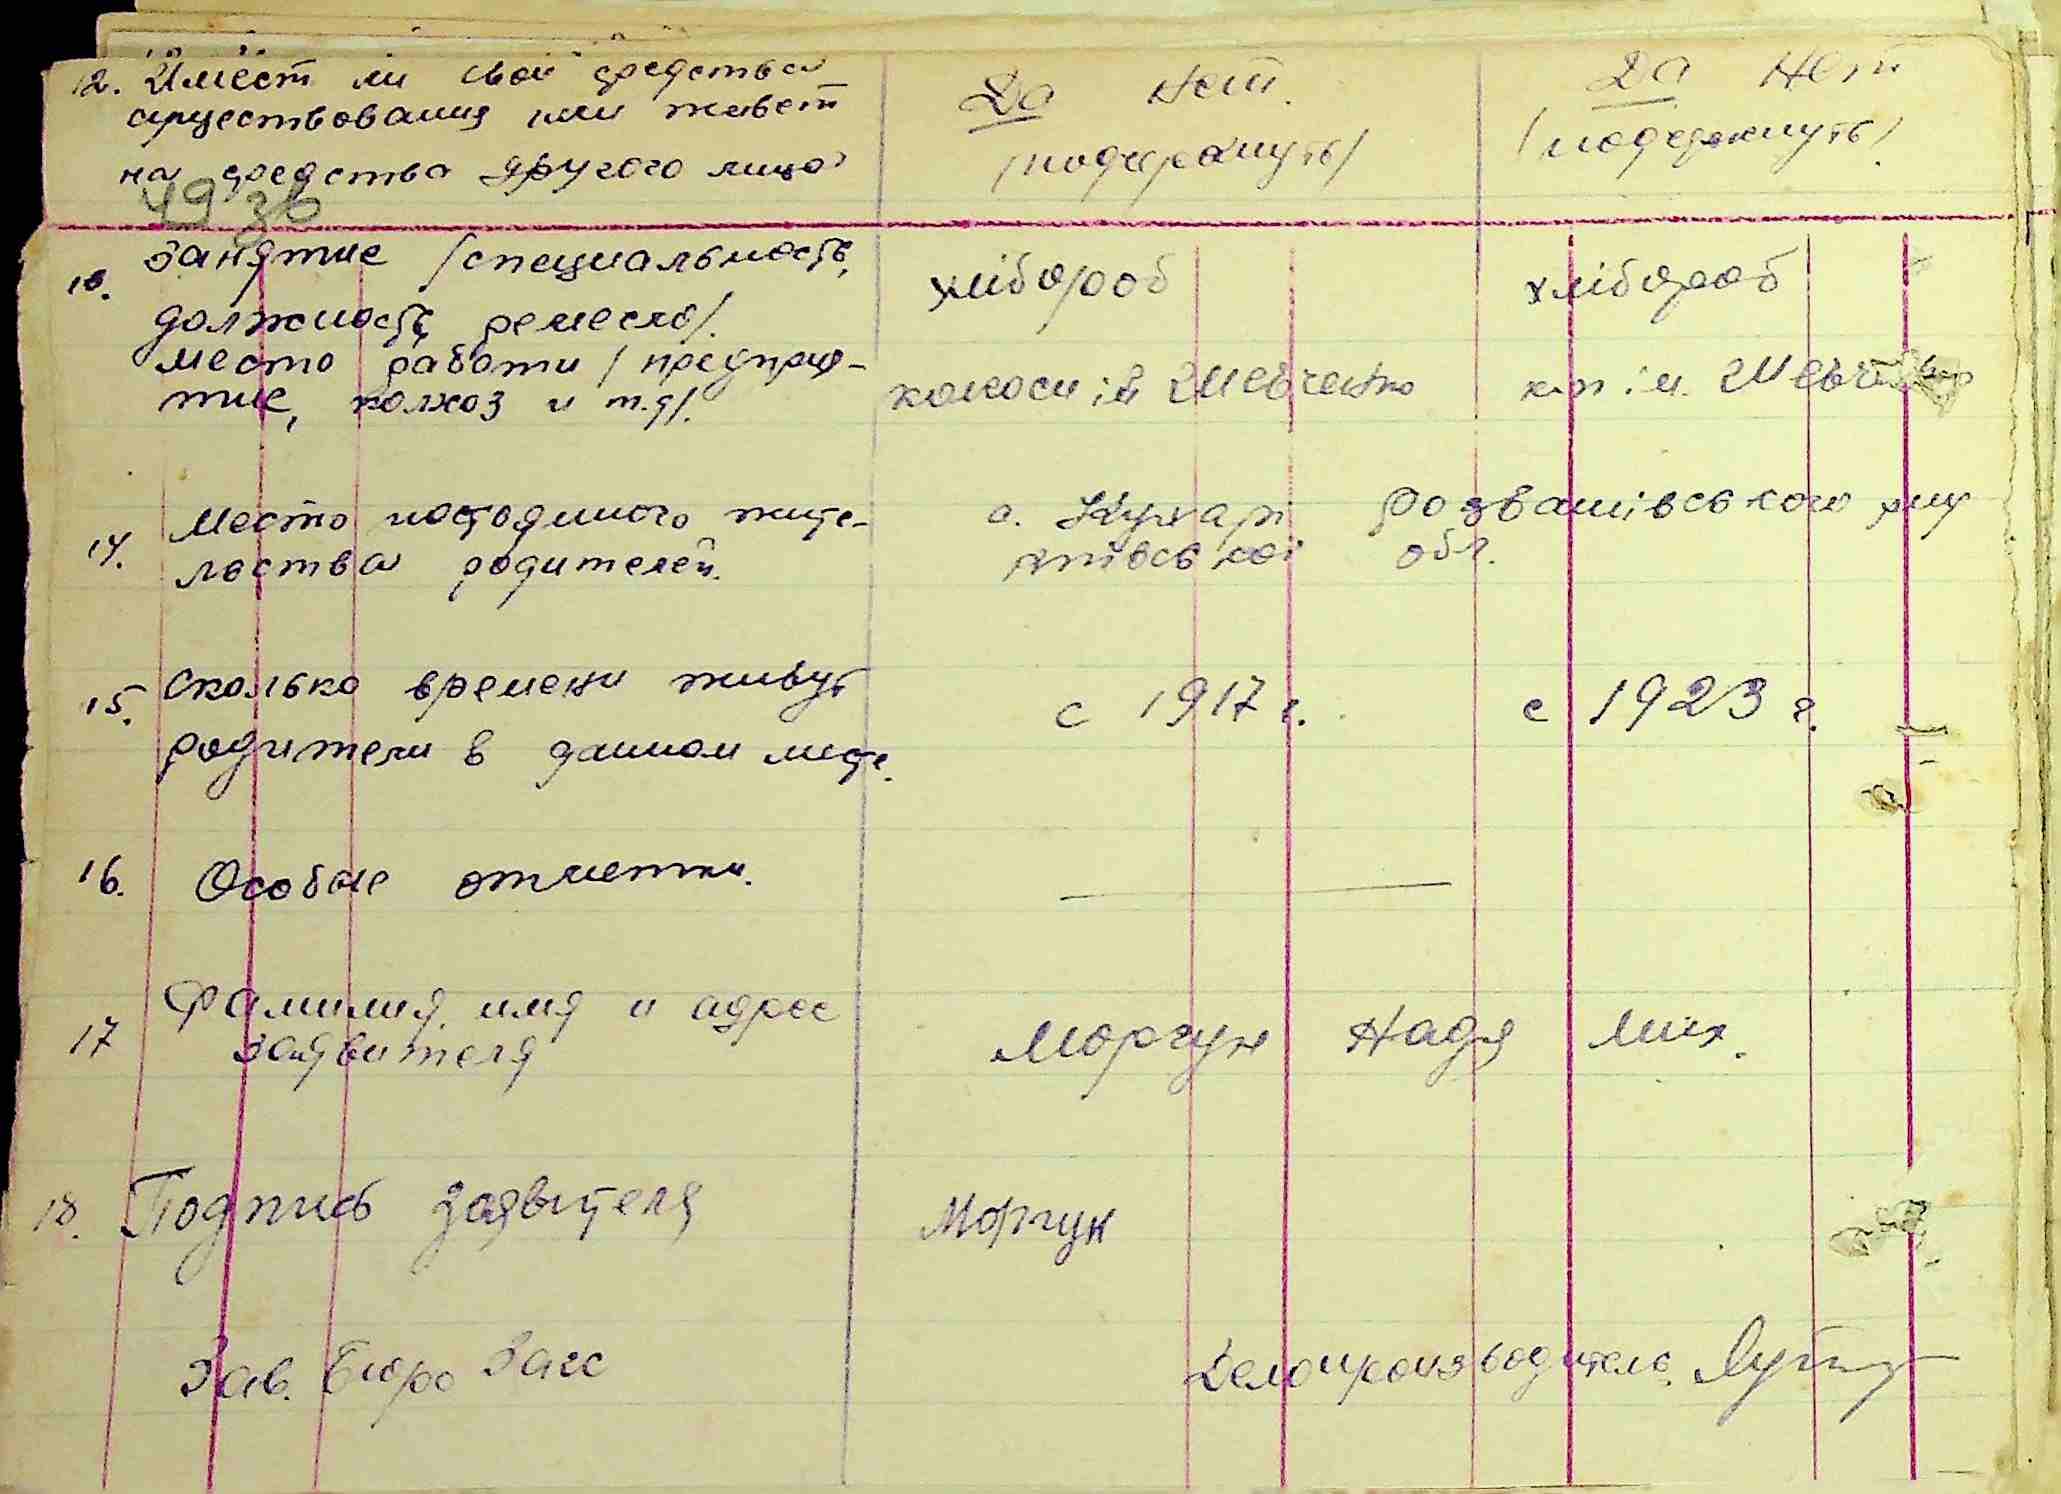 12. Имеет ли свои средства Да Нет. Да Нет
существования или живет /подчеркнуть/ /подчеркнуть/
на средства другого лица
49 зв
13. Занятие /специальность, хлібороб хлібороб
должность, ремесло/.
место работи /предприя- колгосп ім Шевченко к-п ім. Шевченко
тие, колхоз и т.д/.
14. Место постоянного жите- с. Кухарі Розважівського р-ну
льства родителей. Київської обл.
15. Сколько времени живут с 1917 г. с 1923 г.
родители в данном месте.
16. Особые отметки.
17 Фамилия, имя и адрес Моргун Надя Мих.
заявителя
18. Подпись заявителя Моргун
Зав. Бюро Загс Делопроизводитель